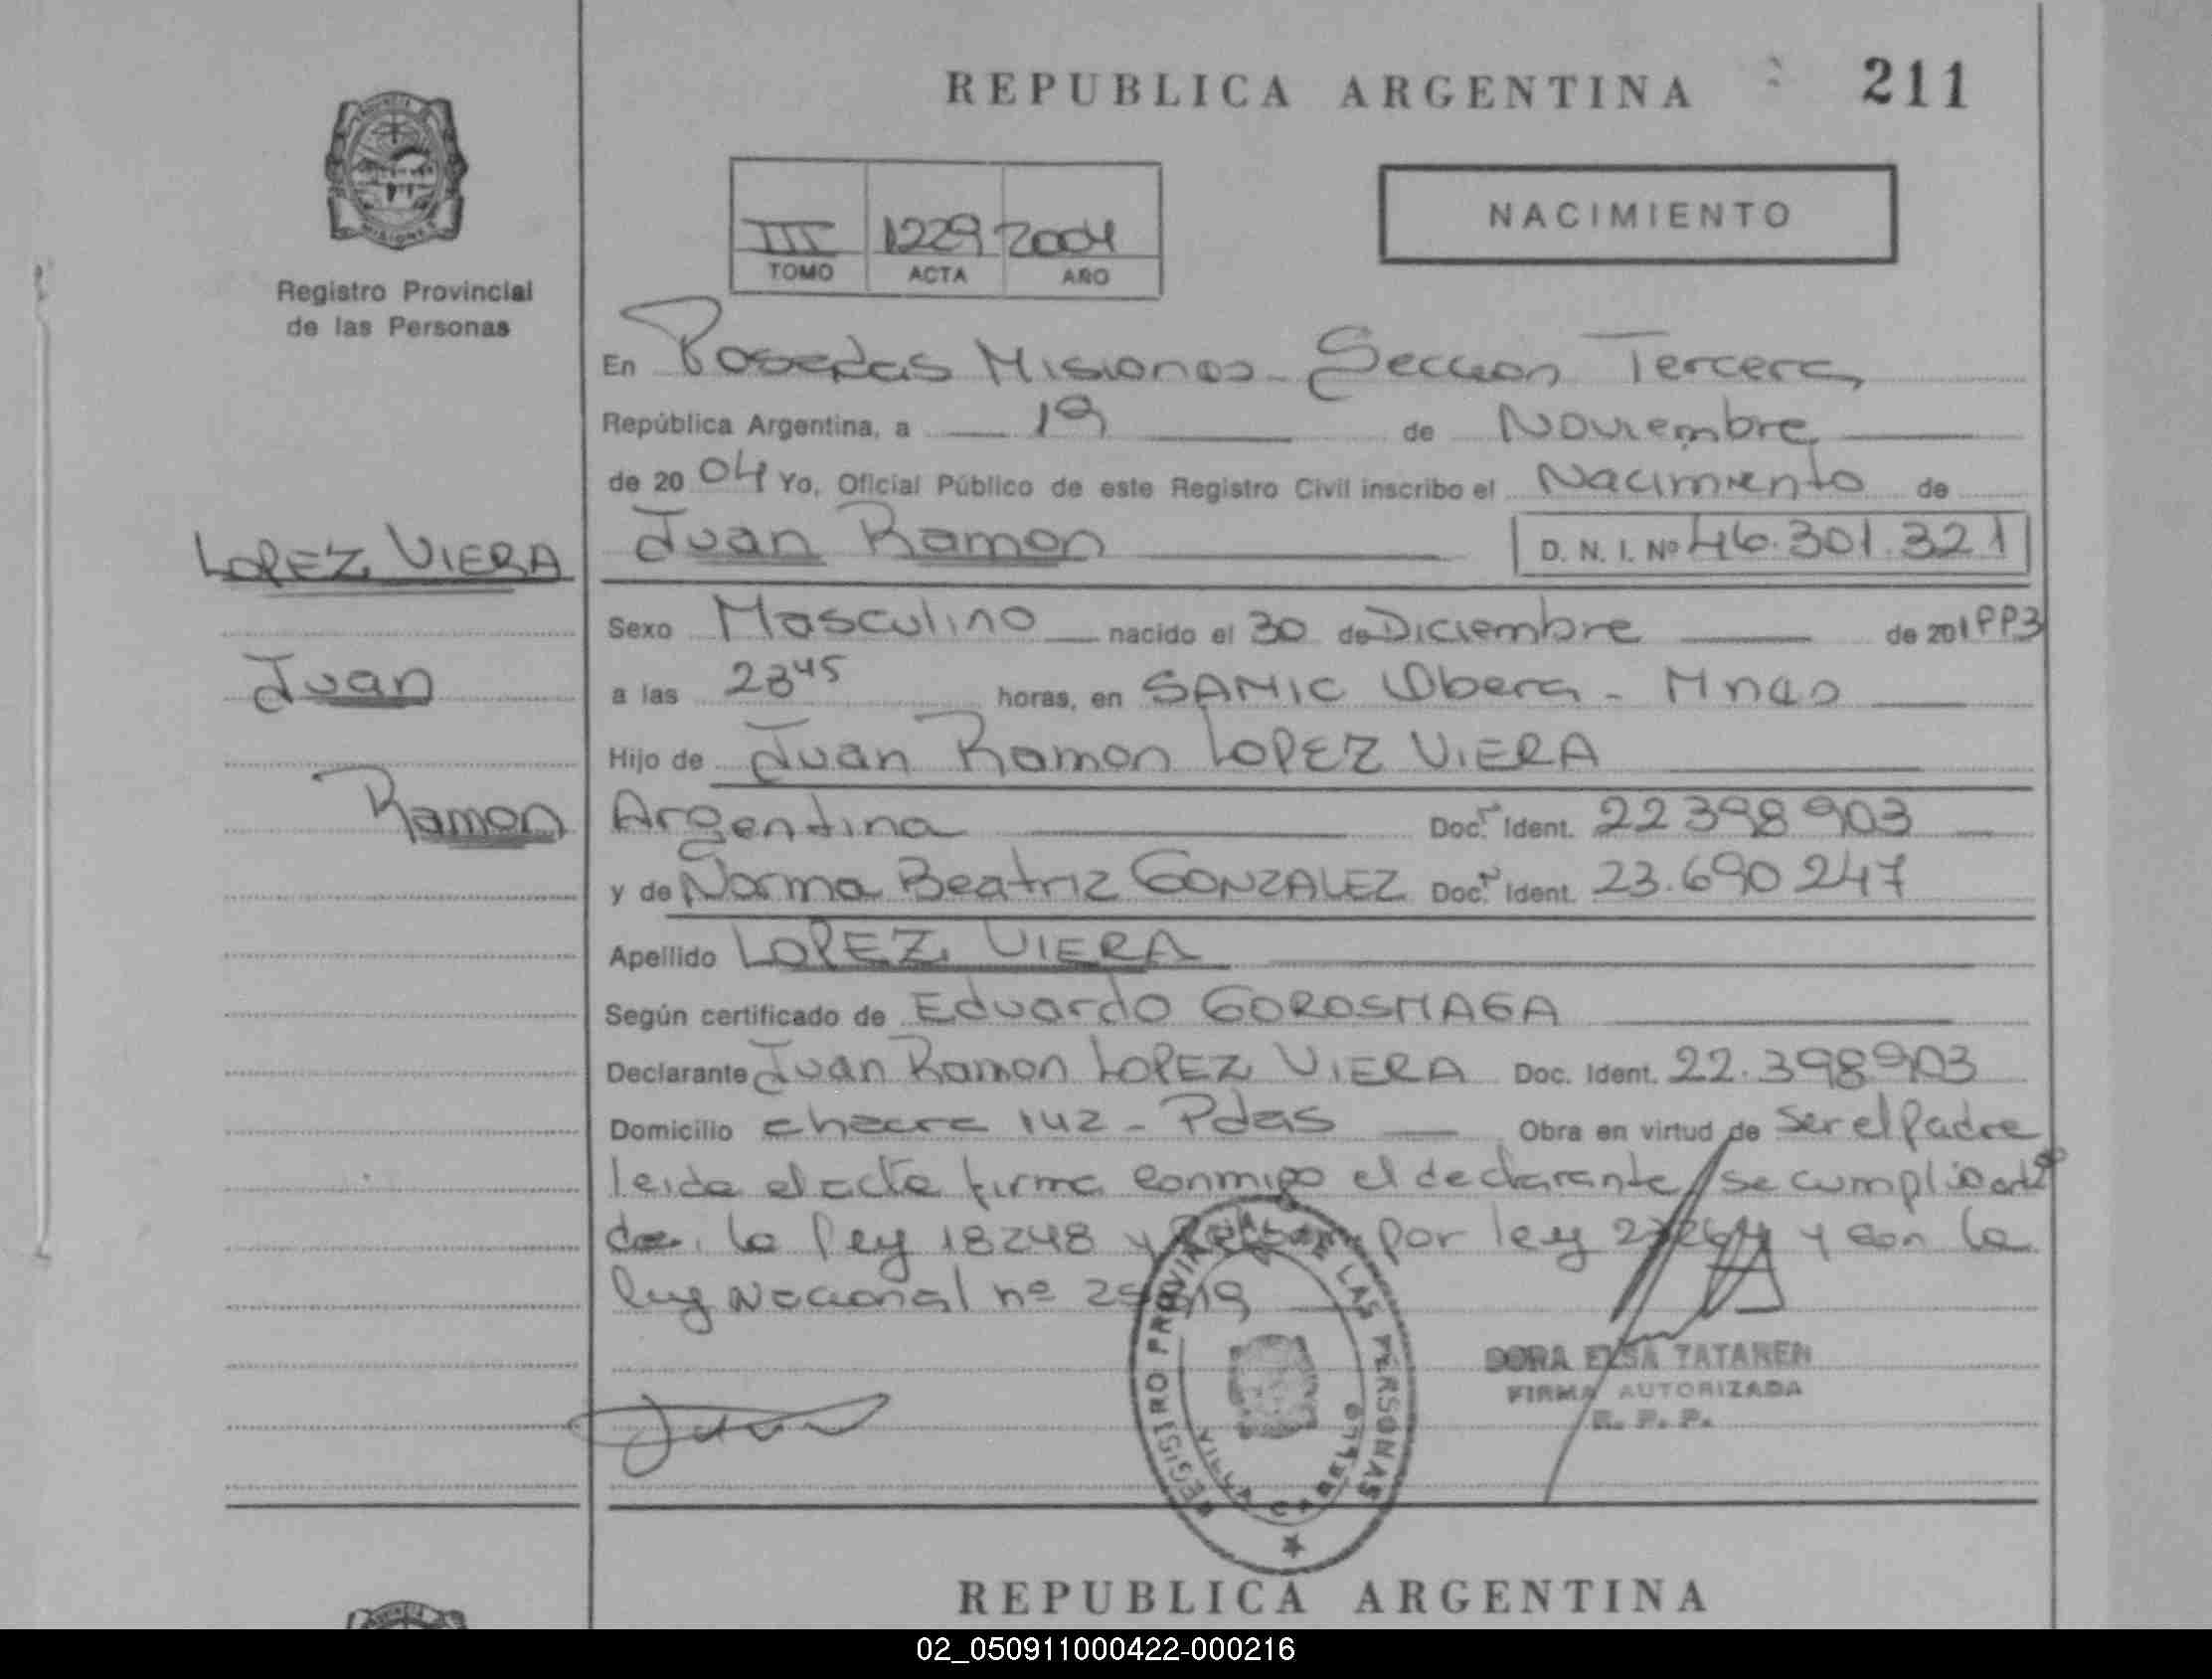 REPUBLICA ARGENTINA 211
NACIMIENTO
III 1229 2004
TOMO ACTA AÑO
Registro Provincial
de las Personas
En Posadas Misiones - Seccion Tercera
República Argentina, a 19 de Noviembre
de 2004 Yo, Oficial Público de este Registro Civil inscribo el Nacimiento de
LOPEZ VIERA
Juan Ramon D. N. I. Nº 46.301.321
Sexo Masculino nacido el 30 de Diciembre de
Juan
a las 23 45 horas, en SAMIC Obera - Mnes
Hijo de Juan Ramon LOPEZ VIERA
Ramon
Argentina Doc. Ident. 22 398 903
y de Norma Beatriz GONZALEZ Doc. Ident. 23.690 247
Apellido LOPEZ VIERA
Según certificado de Eduardo
Declarante Juan Ramon LOPEZ VIERA Doc. Ident. 22.398903
Domicilio chacra 142 - Pdas Obra en virtud de Ser el Padre
leida el acta firma conmigo el declarante se cumplio
de la ley 18248 y por ley y con la
ley Nacional nº
REGISTRO PROVINCIAL DE LAS PERSONAS
VILLA CABELLO
DORA ELSA TATAREN
FIRMA AUTORIZADA
R. P. P.
REPUBLICA ARGENTINA
02_050911000422-000216